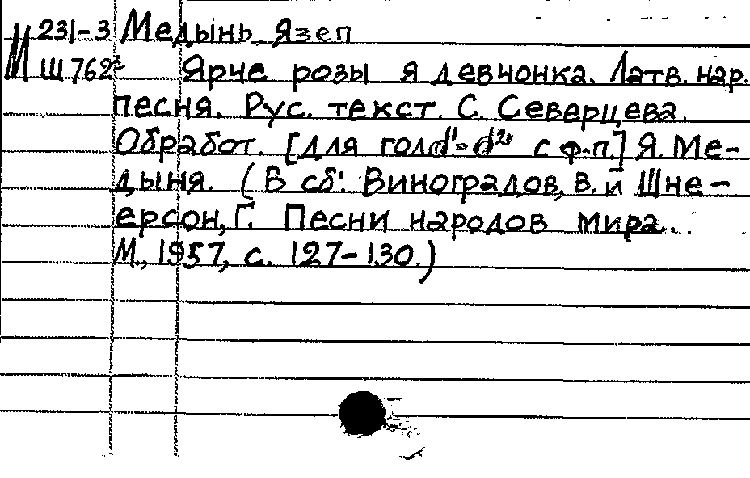 М 231-3 Медынь Язеп
Ш762² Ярче розы я девчонка. Латв. нар.
песня. Рус. текст С. Северцева.
Обработ. [для гол. d¹-d² с ф-п.] Я. Ме-
дыня. (В сб: Виноградов, В. и Шне-
ерсон, Г. Песни народов мира.
М., 1957, с. 127-130.)